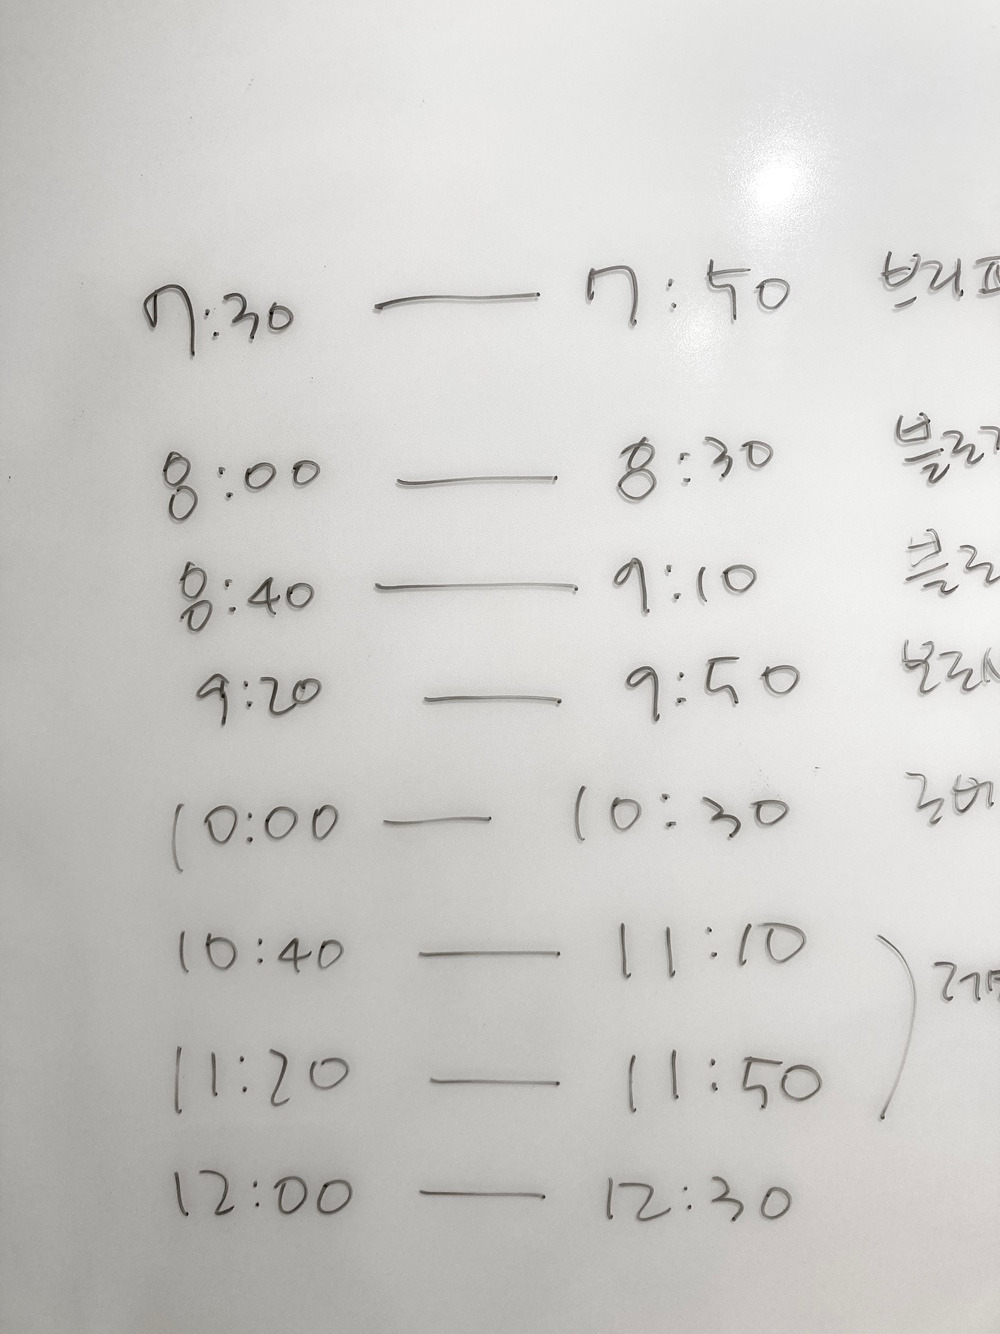 7:30 — 7:50 브리
8:00 — 8:30 블로
8:40 — 9:10 블로
9:20 — 9:50
10:00 — 10:30 로버
10:40 — 11:10
11:20 — 11:50
12:00 — 12:30